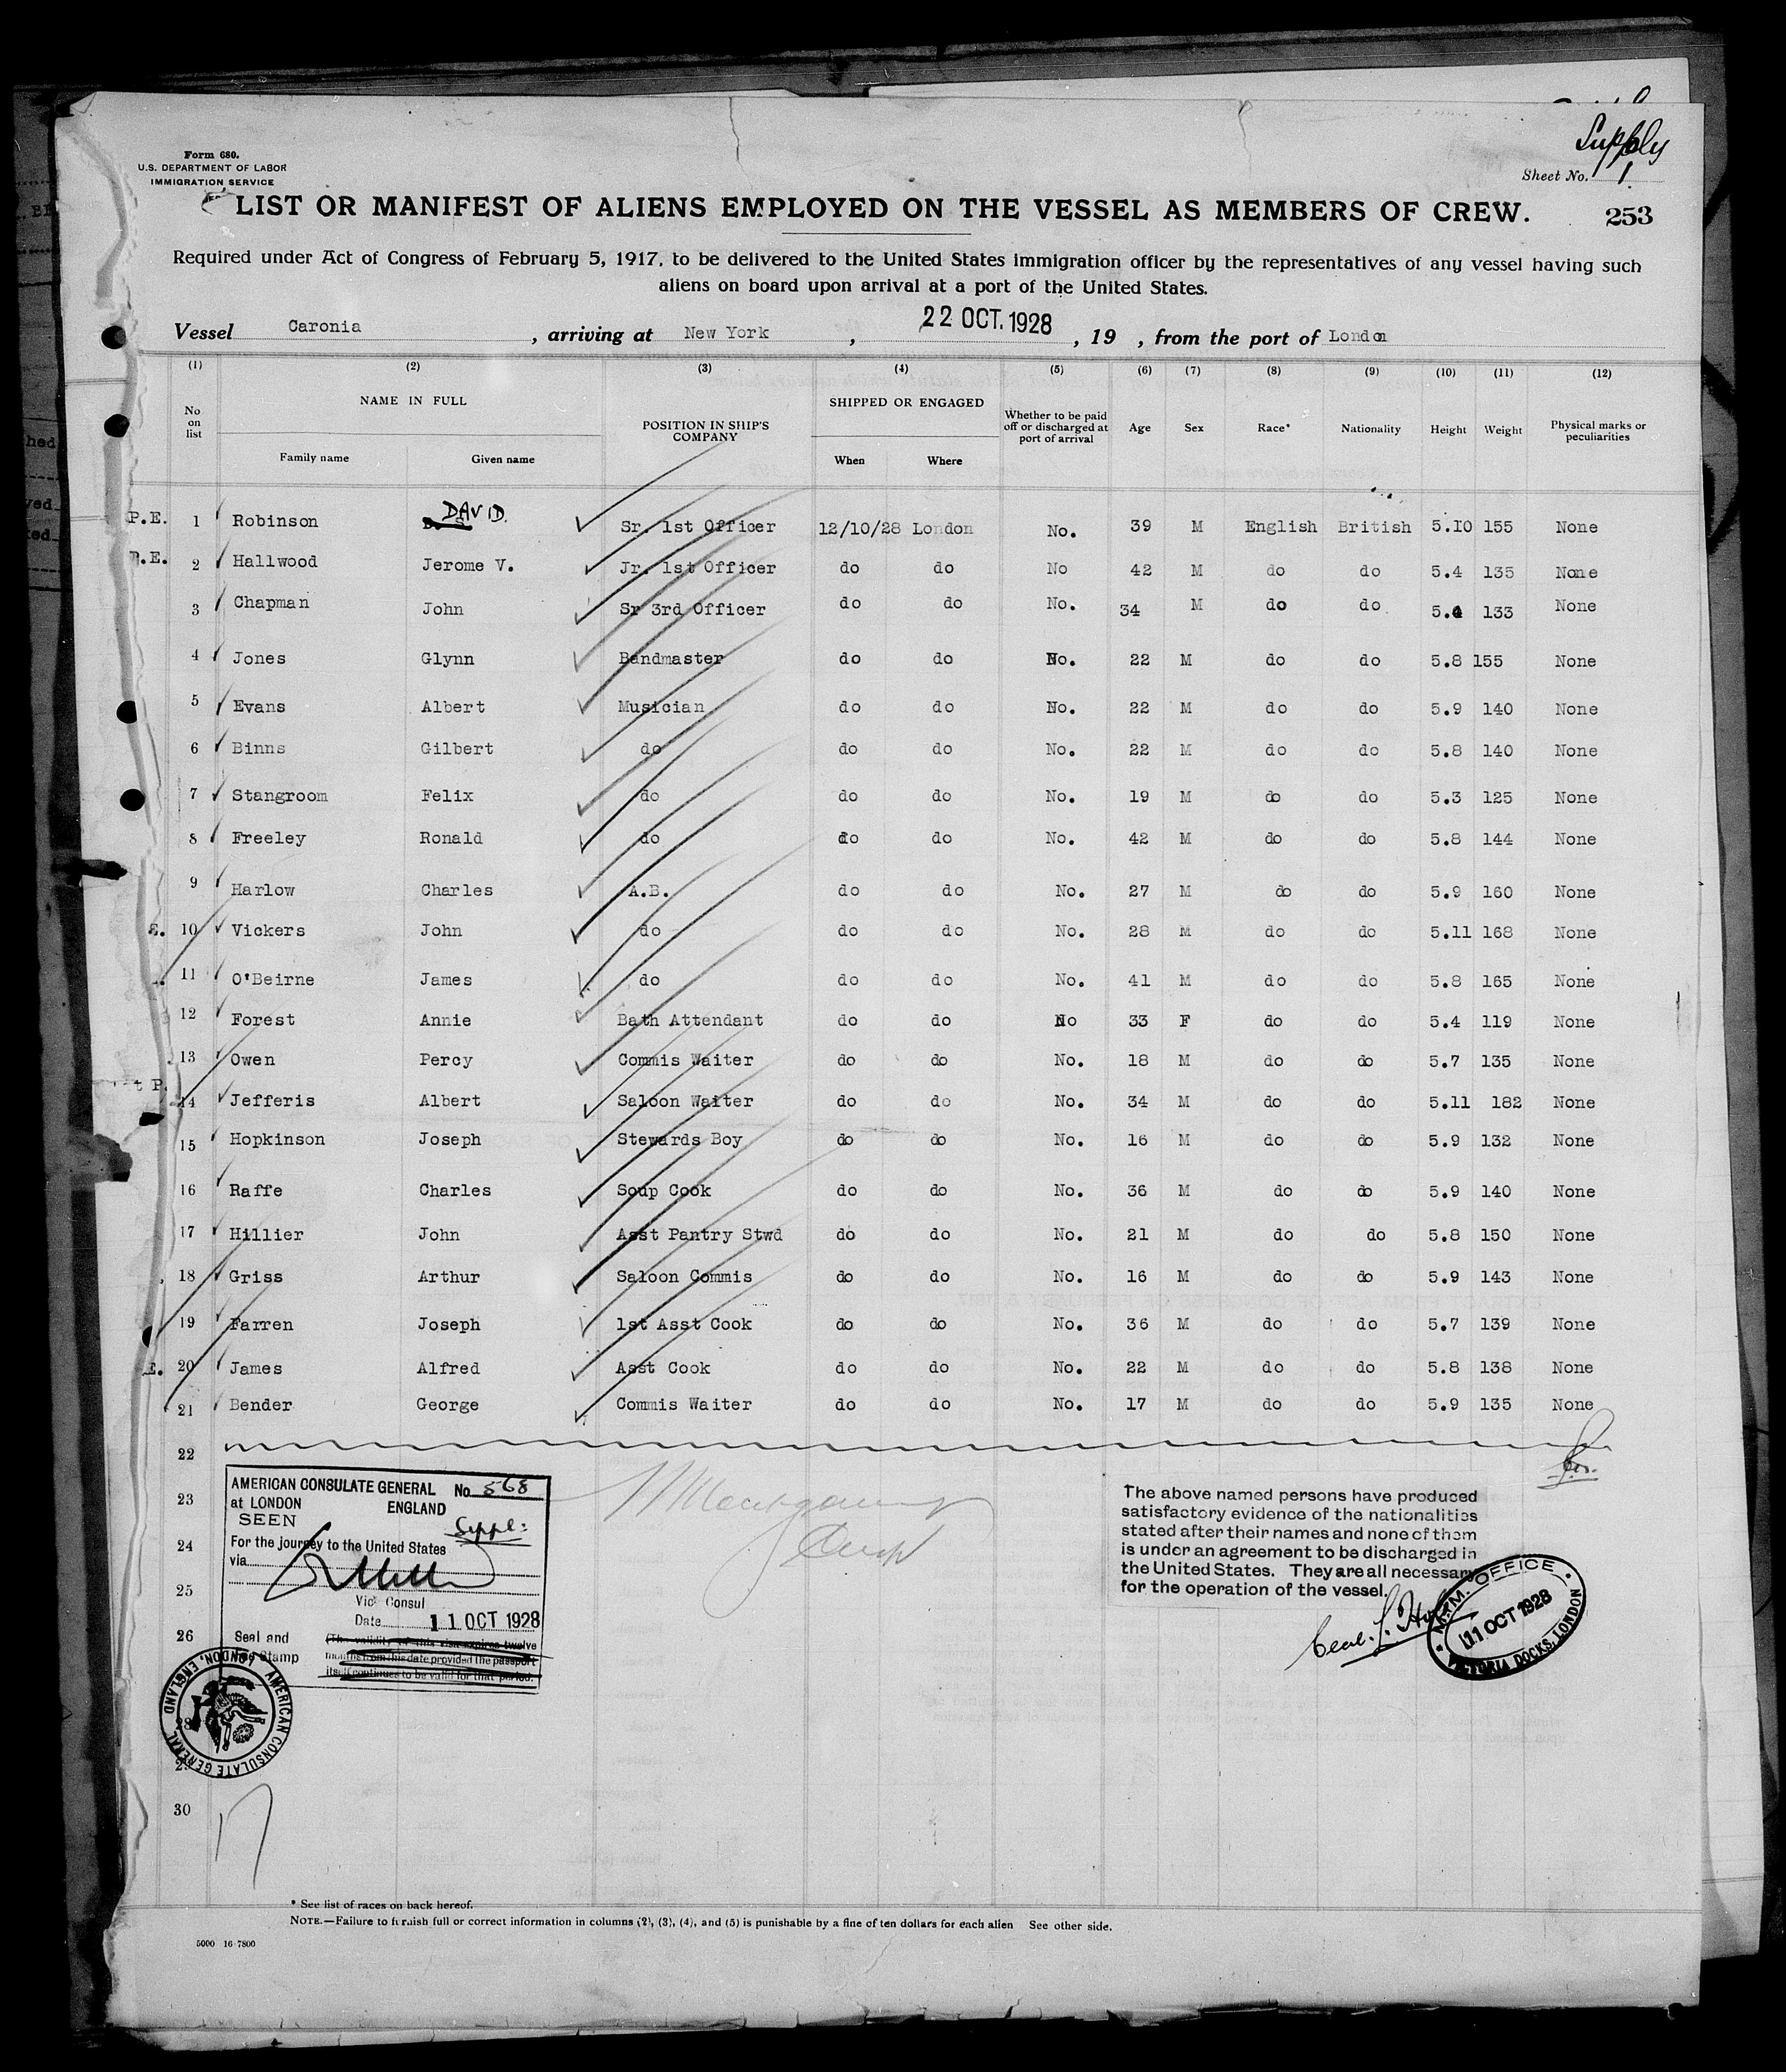 Supply
Form 680.
U.S. DEPARTMENT OF LABOR
IMMIGRATION SERVICE
Sheet No. 1.
LIST OR MANIFEST OF ALIENS EMPLOYED ON THE VESSEL AS MEMBERS OF CREW.
253
Required under Act of Congress of February 5, 1917, to be delivered to the United States immigration officer by the representatives of any vessel having such
aliens on board upon arrival at a port of the United States.
Vessel Caronia, arriving at New York, 22 OCT. 1928, 19 , from the port of London
(1) (2) (3) (4) (5) (6) (7) (8) (9) (10) (11) (12)
No on list NAME IN FULL Family name Given name POSITION IN SHIP'S COMPANY SHIPPED OR ENGAGED When Where Whether to be paid off or discharged at port of arrival Age Sex Race* Nationality Height Weight Physical marks or peculiarities
P.E. 1 Robinson DAVID. Sr. 1st Officer 12/10/28 London No. 39 M English British 5.10 155 None
P.E. 2 Hallwood Jerome V. Jr. 1st Officer do do No 42 M do do 5.4 135 None
3 Chapman John Sr 3rd Officer do do No. 34 M do do 5.4 133 None
4 Jones Glynn Bandmaster do do No. 22 M do do 5.8 155 None
5 Evans Albert Musician do do No. 22 M do do 5.9 140 None
6 Binns Gilbert do do do No. 22 M do do 5.8 140 None
7 Stangroom Felix do do do No. 19 M do do 5.3 125 None
8 Freeley Ronald do do do No. 42 M do do 5.8 144 None
9 Harlow Charles A.B. do do No. 27 M do do 5.9 160 None
E. 10 Vickers John do do do No. 28 M do do 5.11 168 None
11 O'Beirne James do do do No. 41 M do do 5.8 165 None
12 Forest Annie Bath Attendant do do No 33 F do do 5.4 119 None
13 Owen Percy Commis Waiter do do No. 18 M do do 5.7 135 None
t P. 14 Jefferis Albert Saloon Waiter do do No. 34 M do do 5.11 182 None
15 Hopkinson Joseph Stewards Boy do do No. 16 M do do 5.9 132 None
16 Raffe Charles Soup Cook do do No. 36 M do do 5.9 140 None
17 Hillier John Asst Pantry Stwd do do No. 21 M do do 5.8 150 None
18 Griss Arthur Saloon Commis do do No. 16 M do do 5.9 143 None
19 Farren Joseph 1st Asst Cook do do No. 36 M do do 5.7 139 None
E. 20 James Alfred Asst Cook do do No. 22 M do do 5.8 138 None
21 Bender George Commis Waiter do do No. 17 M do do 5.9 135 None
22
23
24
25
26
28
30
AMERICAN CONSULATE GENERAL No. 568
at LONDON ENGLAND
SEEN Suppl:
For the journey to the United States
via
Vice Consul
Date 11 OCT 1928
Seal and
Fee Stamp
(The validity of this visa expires twelve
months from this date provided the passport
itself continues to be valid for that period.
AMERICAN CONSULATE GENERAL LONDON, ENGLAND
The above named persons have produced
satisfactory evidence of the nationalities
stated after their names and none of them
is under an agreement to be discharged in
the United States. They are all necessary
for the operation of the vessel.
M.M. OFFICE
11 OCT 1928
VICTORIA DOCKS, LONDON
* See list of races on back hereof.
NOTE.—Failure to furnish full or correct information in columns (2), (3), (4), and (5) is punishable by a fine of ten dollars for each alien See other side.
5000 16-7800